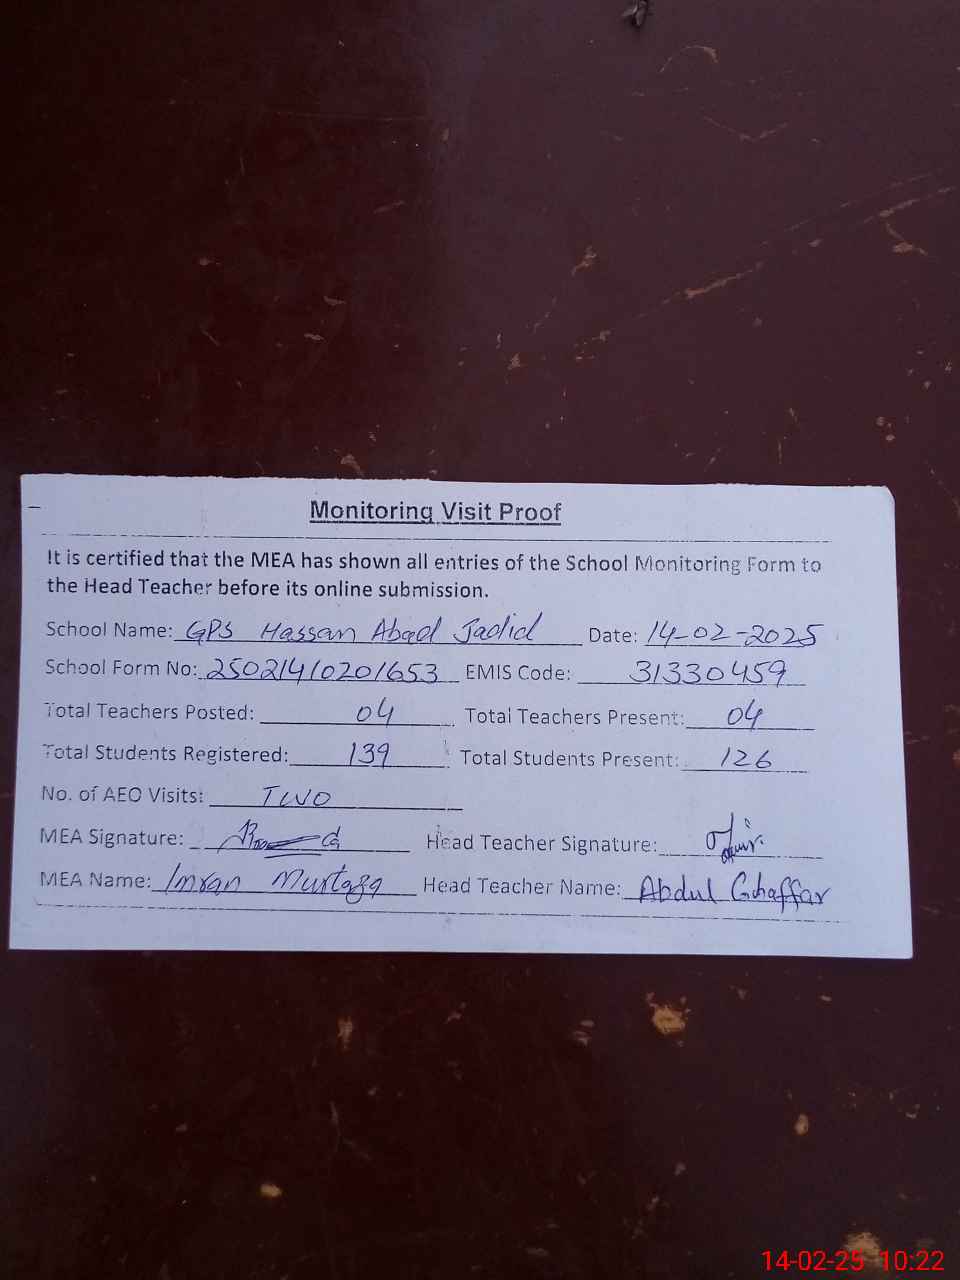 Monitoring Visit Proof
It is certified that the MEA has shown all entries of the School Monitoring Form to
the Head Teacher before its online submission.
School Name: GPS Hassan Abad Jadid Date: 14-02-2025
School Form No: 25021410201653 EMIS Code: 31330459
Total Teachers Posted: 04 Total Teachers Present: 04
Total Students Registered: 139 Total Students Present: 126
No. of AEO Visits: TWO
MEA Signature: Head Teacher Signature:
MEA Name: Imran Murtaza Head Teacher Name: Abdul Ghaffar
14-02-25 10:22